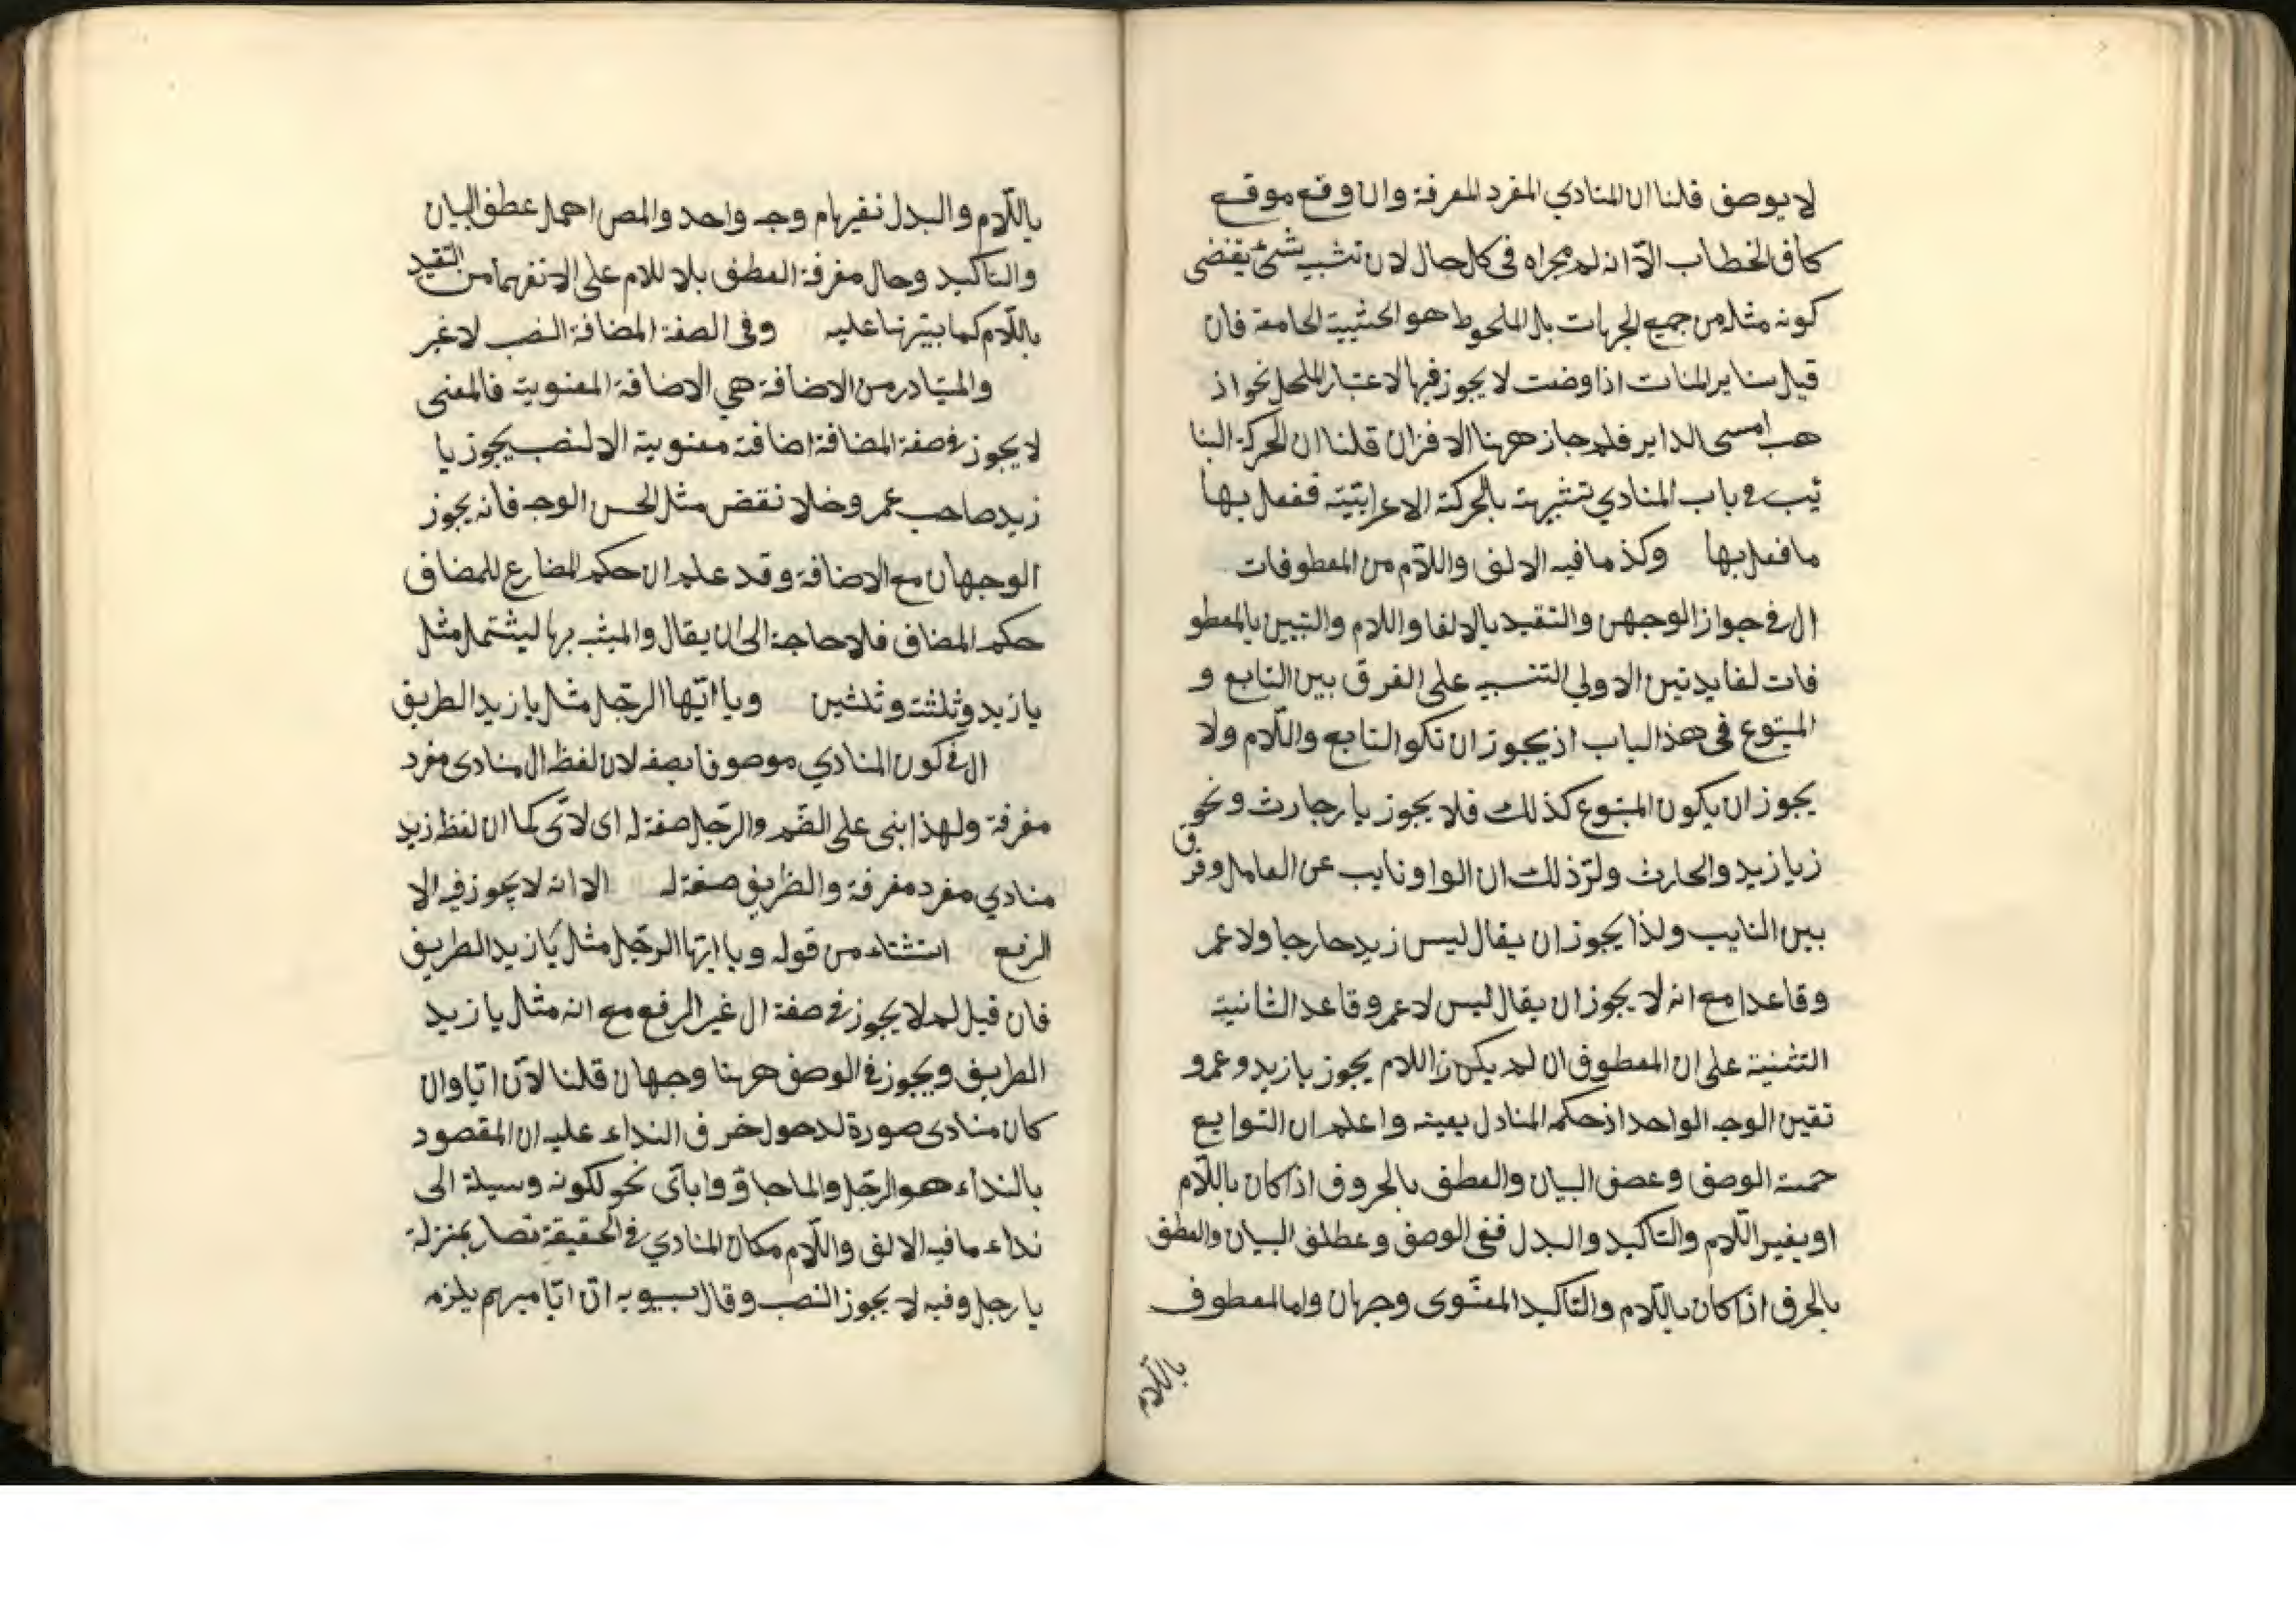 لا يوصف قلنا ان المنادي المفرد المعرفة وان وقع موقع
كاف الخطاب الّا انه لم مجراه فى كل حال لان تشبيه شئ يقضى
كونه مثله من جميع الجهات بل الملحوظ هو الحثيية الجامعة فان
قيل ساير المنات اذا وضت لا يجوز فيها الا عتبار المحل نحو اذ
هب امسى الداير فلم جاز ههنا الافزان قلنا ان الحركة البنا
ئيب فى باب المنادي تشبهت بالحركة الاعرابيّة ففعل بها
ما فعل بها وكذ ما فيه الالف واللآم من المعطوفات
ال فى جواز الوجهن والتقيد بالالفا واللام والتبين بالمعطو
فات لفايدتين الاولي التنبيه على الفرق بين التابع و
المتبوع فى هذ الباب اذ يجوز ان تكو التابع واللّام ولا
يجوز ان يكون المتبوع كذلك فلا يجوز يا رجارث ونحو
ز يا زيد والحارث ولتر ذلك ان الواو نايب عن العامل وفر ق
بين النايب ولذا يجوز ان يقال ليس زيد حارجا ولا عمر
وقاعدا مع انه لا يجوز ان يقال ليس لا عمر وقاعد الثانية
التثنية على ان المعطوف ان لم يكن ز اللام يجوز يا زيد وعمرو
تقين الوجه الواحد اذ حكم المنادل بعينه واعلم ان التوابع
حمسة الوصف وعصف البيان والعطف بالحروف اذا كان باللّام
او بغير اللّام والتاكيد والبدل ففى الوصف وعطلف البيان والعطف
بالحرف اذا كان باللّام والتاكيد المعنوى وجهان واما المعطوف
باللّام
باللّام والبدل نفيرهام وجه واحد والمص اهمل عطف البيان
والتاكيد وحال مغرفة العطف بلا للام على الا نفرهما من التقيد
باللّام كما بيّرنا عليه وفى الصفة المضافة النصب لا غير
والمتبادر من الاضافة هي الاضافة المعنوية فالمعنى
لا يجوز فى صفة المضافة اضافة معنوية الا لنصب يجوز يا
زيد صاحب عمر وخلا نقض مثل الحسن الوجه فانه يجوز
الوجهان مع الاضافة وقد علم ان حكم المضارع للمضاف
حكم المضاف فلا حاجة الى ان يقال والمبثب بها ليشتمل مثل
يا زيد وثلثت وثلثين ويا ايّها الرجّل مثل يا زيد الطريق
ال فى كون المنادي موصوفا بصفه لان لفظ ال منادى مفرد
مغرفة ولهذا بنى على الضّم والرجّل صفة له اى لاتى كما ان لفظ زيد
منادي مفرد مغرفة والظريف صفة له الا انه لا يجوز فيه الا
الرفع استثناء من قوله ويا ايّها الرجّل مثل يا زيد الطريف
فان قيل لم لا يجوز فى صفة ال غير الرفع مع انه مثل يا زيد
الطريف ويجوز فى الوصف ههنا وجهان قلنا لانّ ايّا وان
كان منادى صورة لدحول خرف النداء عليه ان المقصود
بالنداء هو الرجّل والما جاؤ وا باىّ نحو لكونه وسيلة الى
نداء ما فيه الالف واللّام مكان المنادي فى الحقيقة تصار بمنزلة
يا رجل وفيه لا يجوز النصب وقال سيبويه انّ ايّا مبهم يلزمه